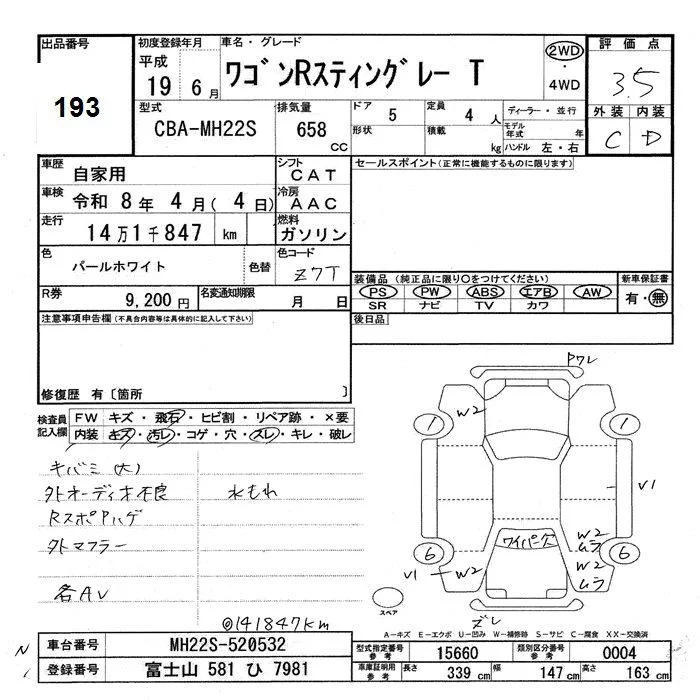 出品番号
193
初度登録年月
平成
19 6月
車名・グレード
ワゴンRスティングレー T
2WD
・
4WD
評価点
3.5
外装 内装
C D
型式
CBA-MH22S
排気量
658
cc
ドア 5
形状
定員 4 人
積載 kg
ディーラー・並行
モデル年式 年
ハンドル 左・右
車歴 自家用
車検 令和 8 年 4 月( 4 日)
走行 14万1千847 km
シフト CAT
冷房 AAC
燃料 ガソリン
色 パールホワイト 色替
色コード Z7T
R券 9,200円
名変通知期限 月 日
セールスポイント(正常に機能するものに限ります)
装備品 (純正品に限り○をつけてください)
PS PW ABS エアB AW
SR ナビ TV カワ
新車保証書
有・無
後日品
注意事項申告欄(不具合内容等は具体的に記入して下さい)
修復歴 有〔箇所 〕
検査員記入欄
FW キズ・飛石・ヒビ割・リペア跡・×要
内装 キズ・汚レ・コゲ・穴・スレ・キレ・破レ
キバミ(大)
外オーディオ不良 水もれ
RスポPハゲ
外マフラー
各AV
@141847km
Pワレ
W2
1
1
V1
6
6
ワイパー欠
W2
ムラ
W2
ムラ
V1
W2
ズレ
スペア
A-キズ E-エクボ U-凹み W-補修跡 S-サビ C-腐食 XX-交換済
車台番号 MH22S-520532
登録番号 富士山 581 ひ 7981
型式指定番号 参考 15660
類別区分番号 参考 0004
車庫証明用 参考 長さ 339 cm 幅 147 cm 高さ 163 cm